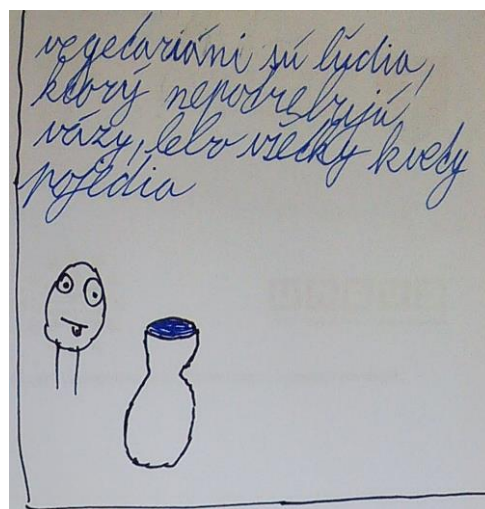 vegetariáni sú lúdia,
ktorý nepotrebujú
vázy, lebo všetky kvety
pojedia